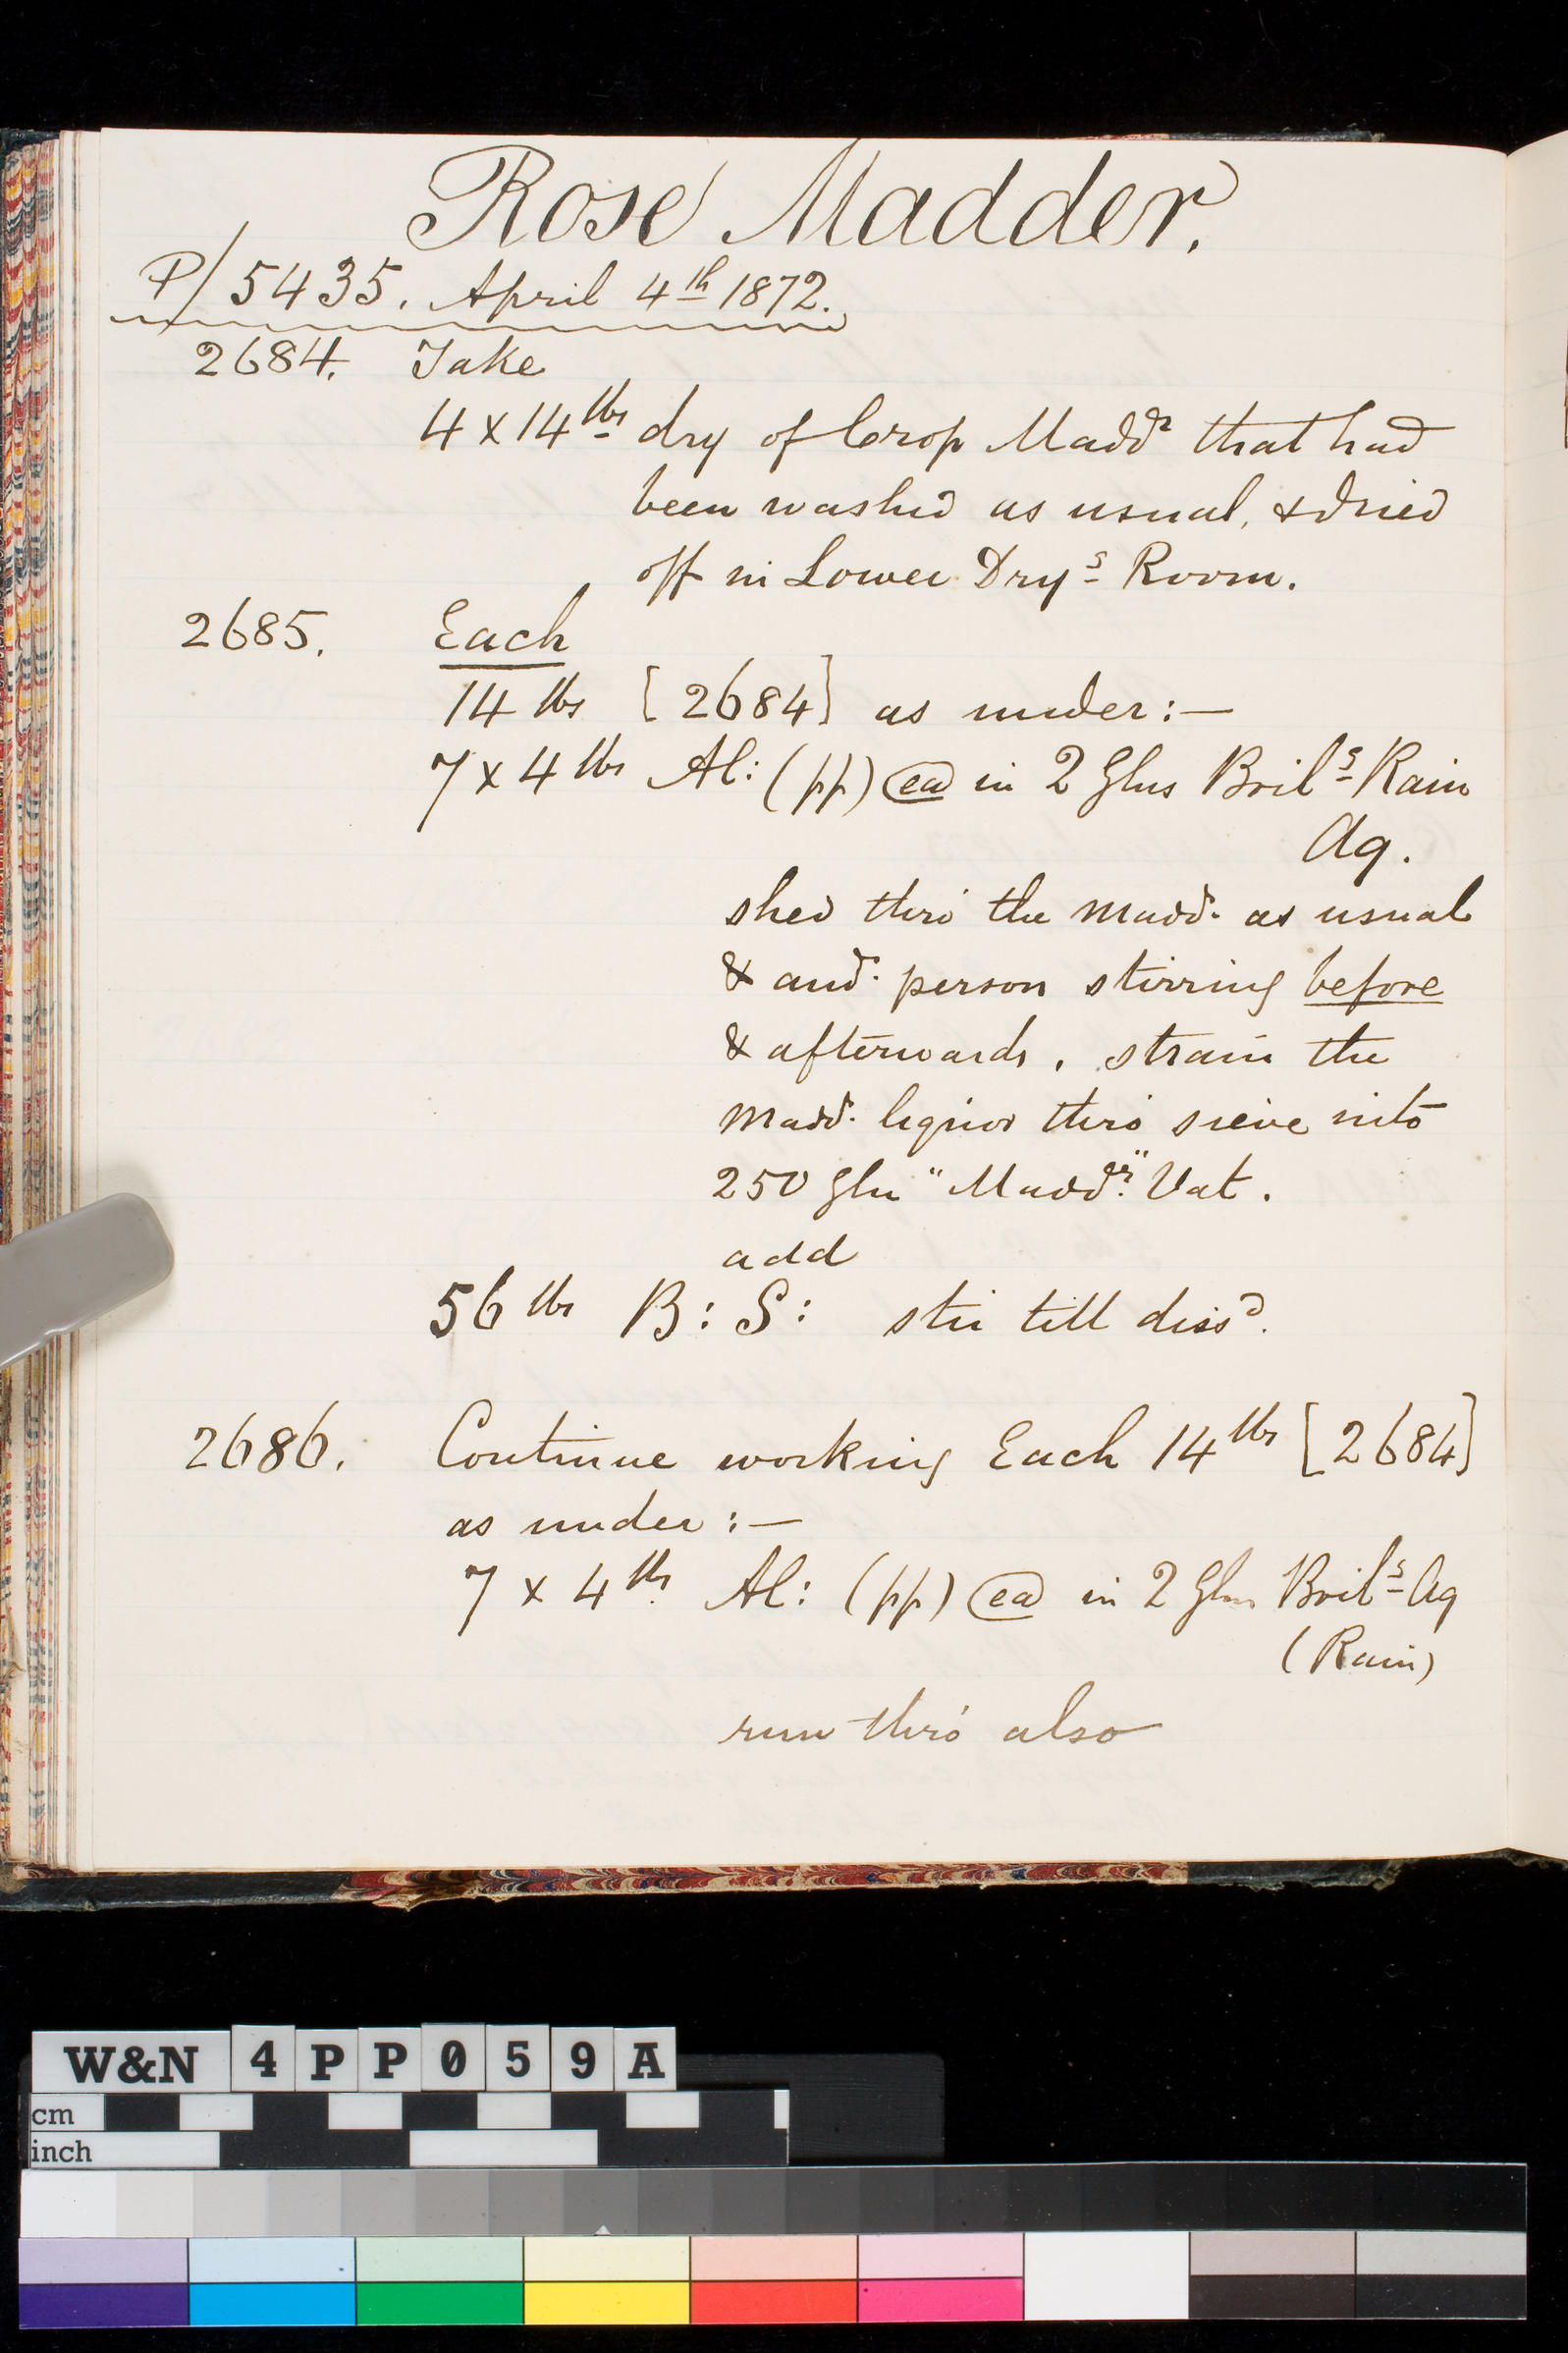 Rose Madder.
P/5435. April 4th 1872.
2684. Take
4 x 14 lbs dry of Crop Maddr that had
been washed as usual, & dried
off in Lower Dryg Room.
2685. Each
14 lbs [2684] as under:—
7 x 4 lbs Al: (pp) ea in 2 Glns Boilg Rain
Aq.
shed thro' the Madd. as usual
& and. person stirring before
& afterwards. strain the
Madd. liquor thro' sieve into
250 Gln "Maddr." Vat.
add
56 lbs B: S: stir till dissd.
2686. Continue working Each 14 lbs [2684]
as under:—
7 x 4 lbs Al: (pp) ea in 2 Glns Boilg Aq
(Rain)
run thro' also
W&N 4PP059A
cm
inch